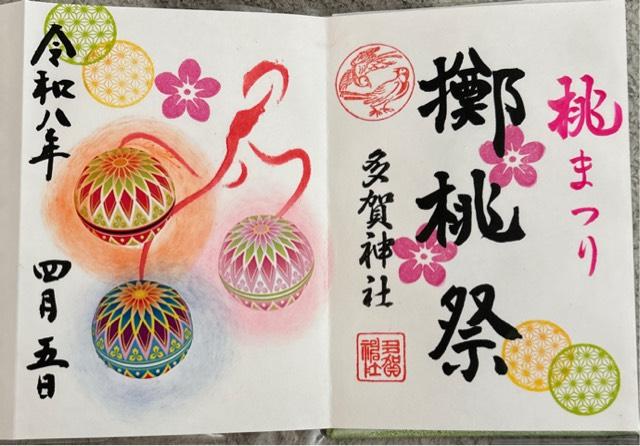 桃まつり
擲桃祭
多賀神社
多賀神社
令和八年
四月五日